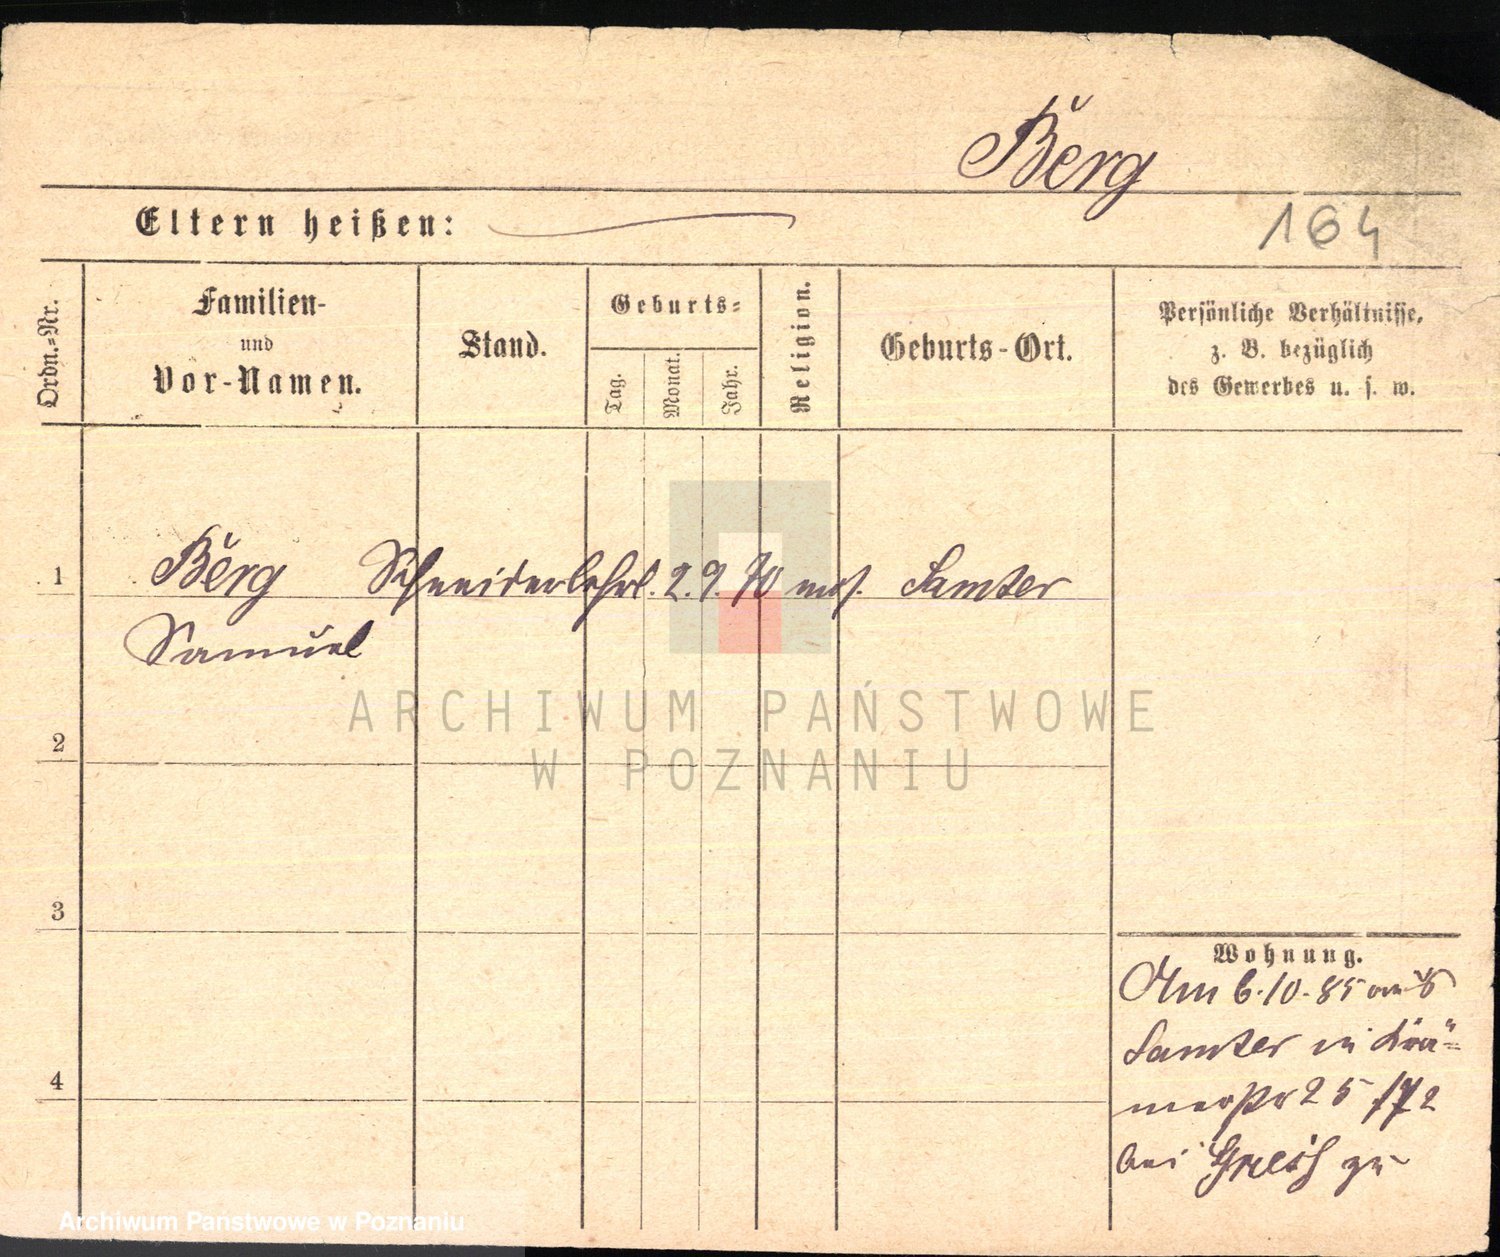 Berg
164
Eltern heißen:
Ordn.-Nr.
Familien-
und
Vor-Namen.
Stand.
Geburts-
Tag.
Monat.
Jahr.
Religion.
Geburts-Ort.
Persönliche Verhältnisse,
z. B. bezüglich
des Gewerbes u. s. w.
1 Berg Schneiderlehrl. 2. 9. 70 mos. Samter
Samuel
2
3
4
Wohnung.
Am 6.10.85 aus
Samter in Krä=
merstr 25
bei zu
ARCHIWUM PAŃSTWOWE
W POZNANIU
Archiwum Panstwowe w Poznaniu